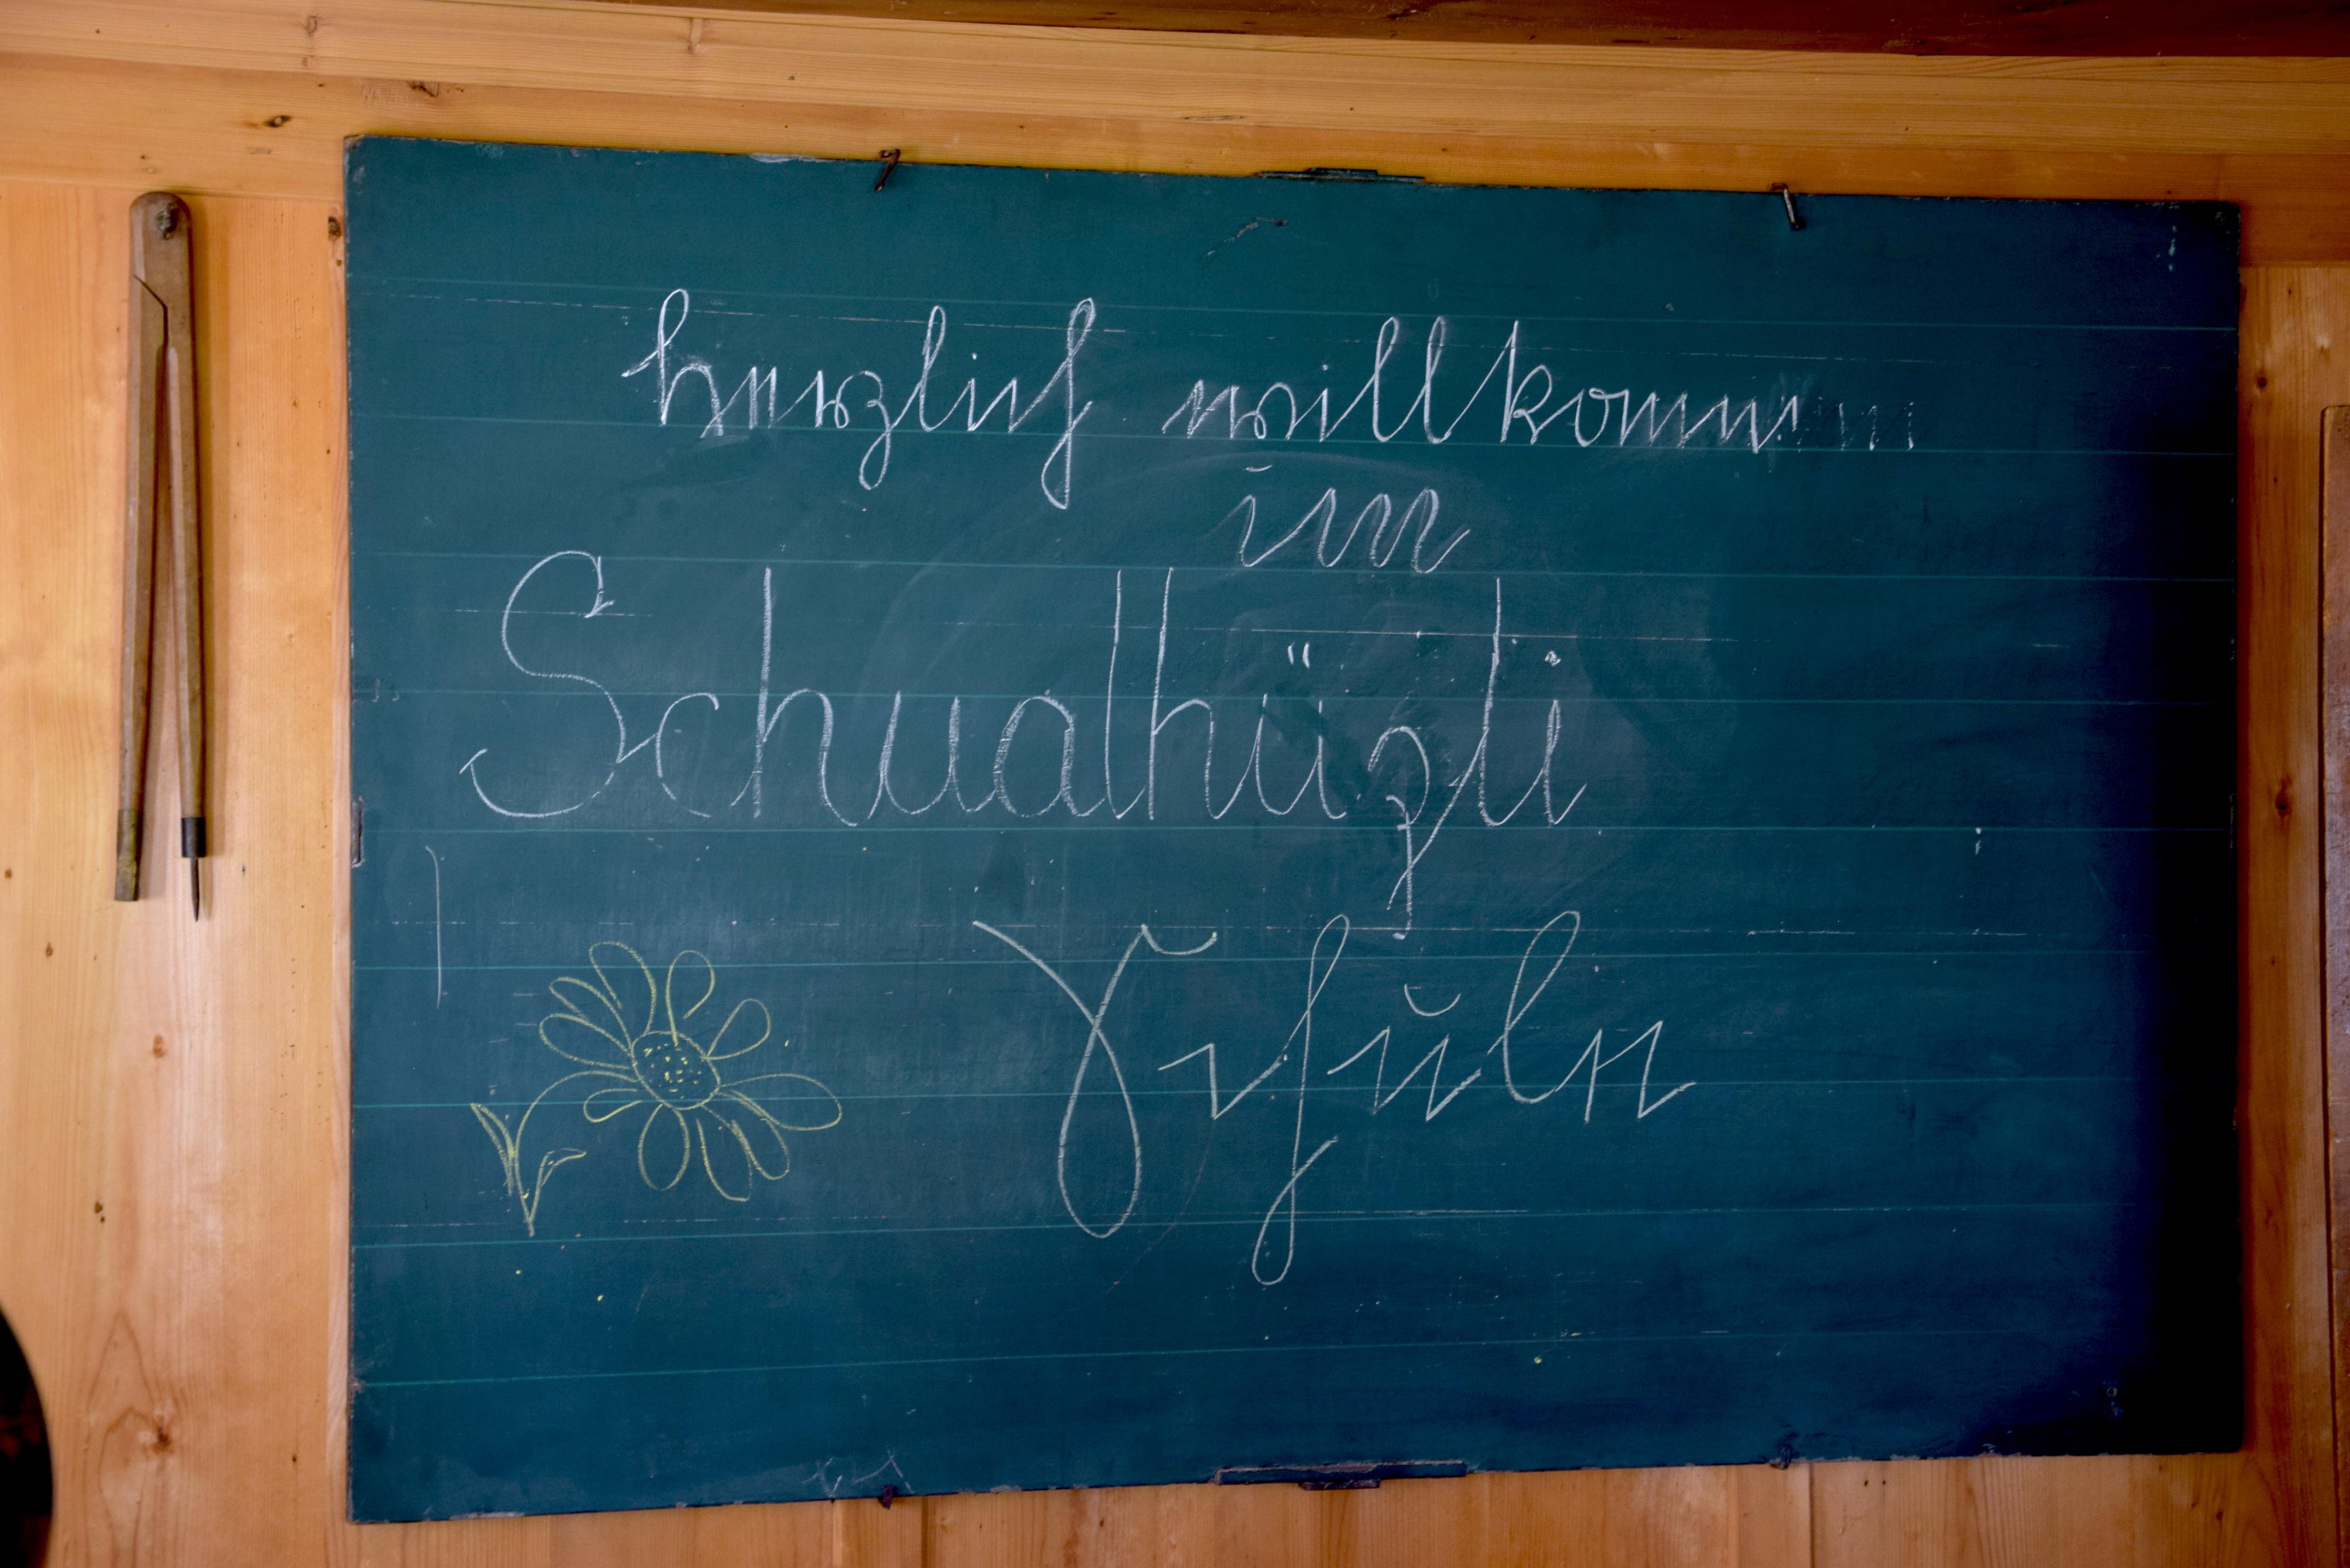 herzlich willkommen
im
Schualhüzli
Schule